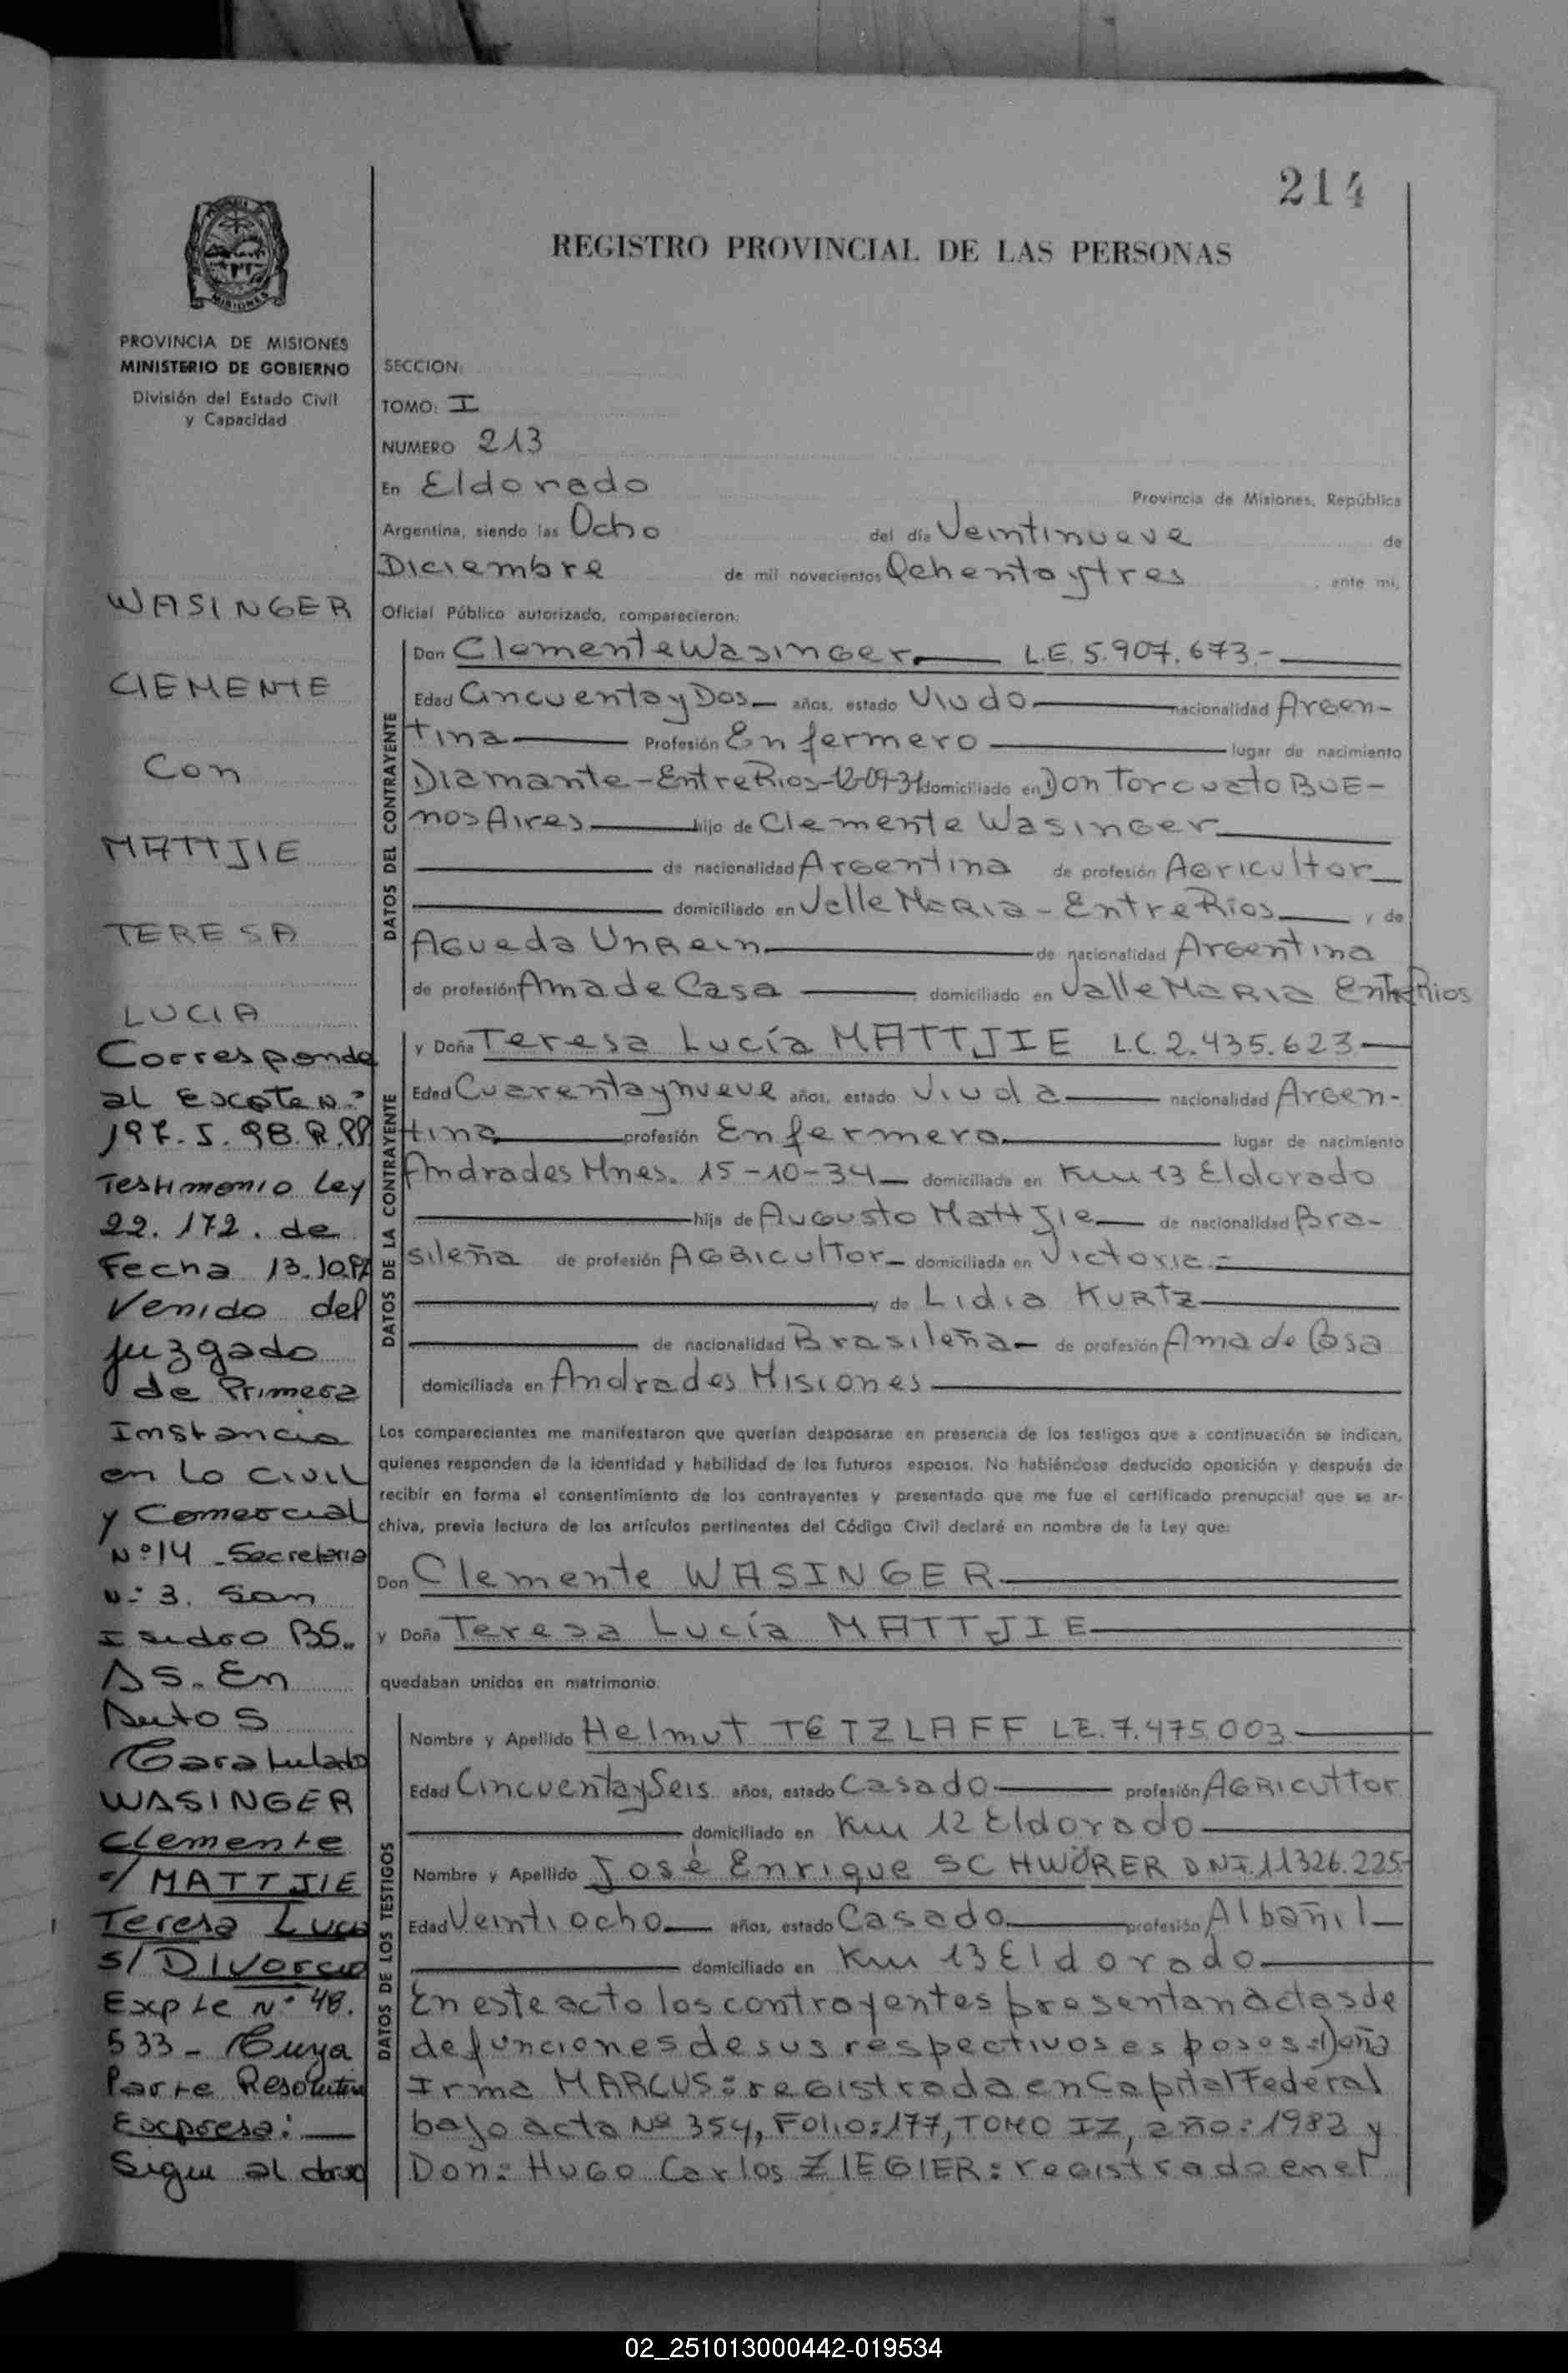 214
REGISTRO PROVINCIAL DE LAS PERSONAS
MISIONES
PROVINCIA DE MISIONES
MINISTERIO DE GOBIERNO
División del Estado Civil
y Capacidad
WASINGER
CLEMENTE
Con
MATTJIE
TERESA
LUCIA
Corresponde
al Excpte N.º
197. I. 98. R.PP
Testimonio Ley
22.172. de
Fecha 13.10.97
Venido del
Juzgado
de Primera
Instancia
en Lo Civil
y Comercial
Nº 14 - Secretaria
Nº 3. San
Isidro BS.
AS. En
Autos
Caratulado
WASINGER
Clemente
c/ MATTJIE
Teresa Lucia
s/ Divorcio
Expte Nº 48.
533 - Cuya
Parte Resolutiva
Expresa:
Sigue al dorso
SECCION:
TOMO: I
NUMERO 213
En Eldorado Provincia de Misiones, República
Argentina, siendo las Ocho del día Veintinueve de
Diciembre de mil novecientos Ochenta y tres, ante mí,
Oficial Público autorizado, comparecieron:
DATOS DEL CONTRAYENTE
Don Clemente Wasinger L.E. 5.907.673.-
Edad Cincuenta y Dos años, estado Viudo nacionalidad Argen-
tina Profesión Enfermero lugar de nacimiento
Diamante - Entre Rios - 12-09-31 domiciliado en Don Torcuato BUE-
nos Aires hijo de Clemente Wasinger
de nacionalidad Argentina de profesión Agricultor
domiciliado en Valle Maria - Entre Rios y de
Agueda Unrein de nacionalidad Argentina
de profesión Ama de Casa domiciliado en Valle Maria Entre Rios
DATOS DE LA CONTRAYENTE
y Doña Teresa Lucía MATTJIE L.C. 2.435.623
Edad Cuarenta y nueve años, estado Viuda nacionalidad Argen-
tina profesión Enfermera lugar de nacimiento
Andrades Mnes. 15-10-34 domiciliada en Km 13 Eldorado
hija de Augusto Mattjie de nacionalidad Bra-
sileña de profesión Agricultor domiciliada en Victoria.-
y de Lidia KURTZ
de nacionalidad Brasileña de profesión Ama de Casa
domiciliada en Andrades Misiones
Los comparecientes me manifestaron que querían desposarse en presencia de los testigos que a continuación se indican,
quienes responden de la identidad y habilidad de los futuros esposos. No habiéndose deducido oposición y después de
recibir en forma el consentimiento de los contrayentes y presentado que me fue el certificado prenupcial que se ar-
chiva, previa lectura de los artículos pertinentes del Código Civil declaré en nombre de la Ley que:
Don Clemente WASINGER
y Doña Teresa Lucía MATTJIE
quedaban unidos en matrimonio.
DATOS DE LOS TESTIGOS
Nombre y Apellido Helmut TETZLAFF LE. 7.475.003
Edad Cincuenta y Seis años, estado Casado profesión Agricultor
domiciliado en Km 12 Eldorado
Nombre y Apellido José Enrique SCHWÖRER D.N.I. 11326.225-
Edad Veintiocho años, estado Casado profesión Albañil
domiciliado en Km 13 Eldorado
En este acto los contrayentes presentan actas de
defunciones de sus respectivos esposos: Doña
Irma MARCUS: registrada en Capital Federal
bajo acta Nº 354, Folio: 177, TOMO IZ, año: 1983 y
Don: Hugo Carlos ZIEGLER: registrado en el
02_251013000442-019534